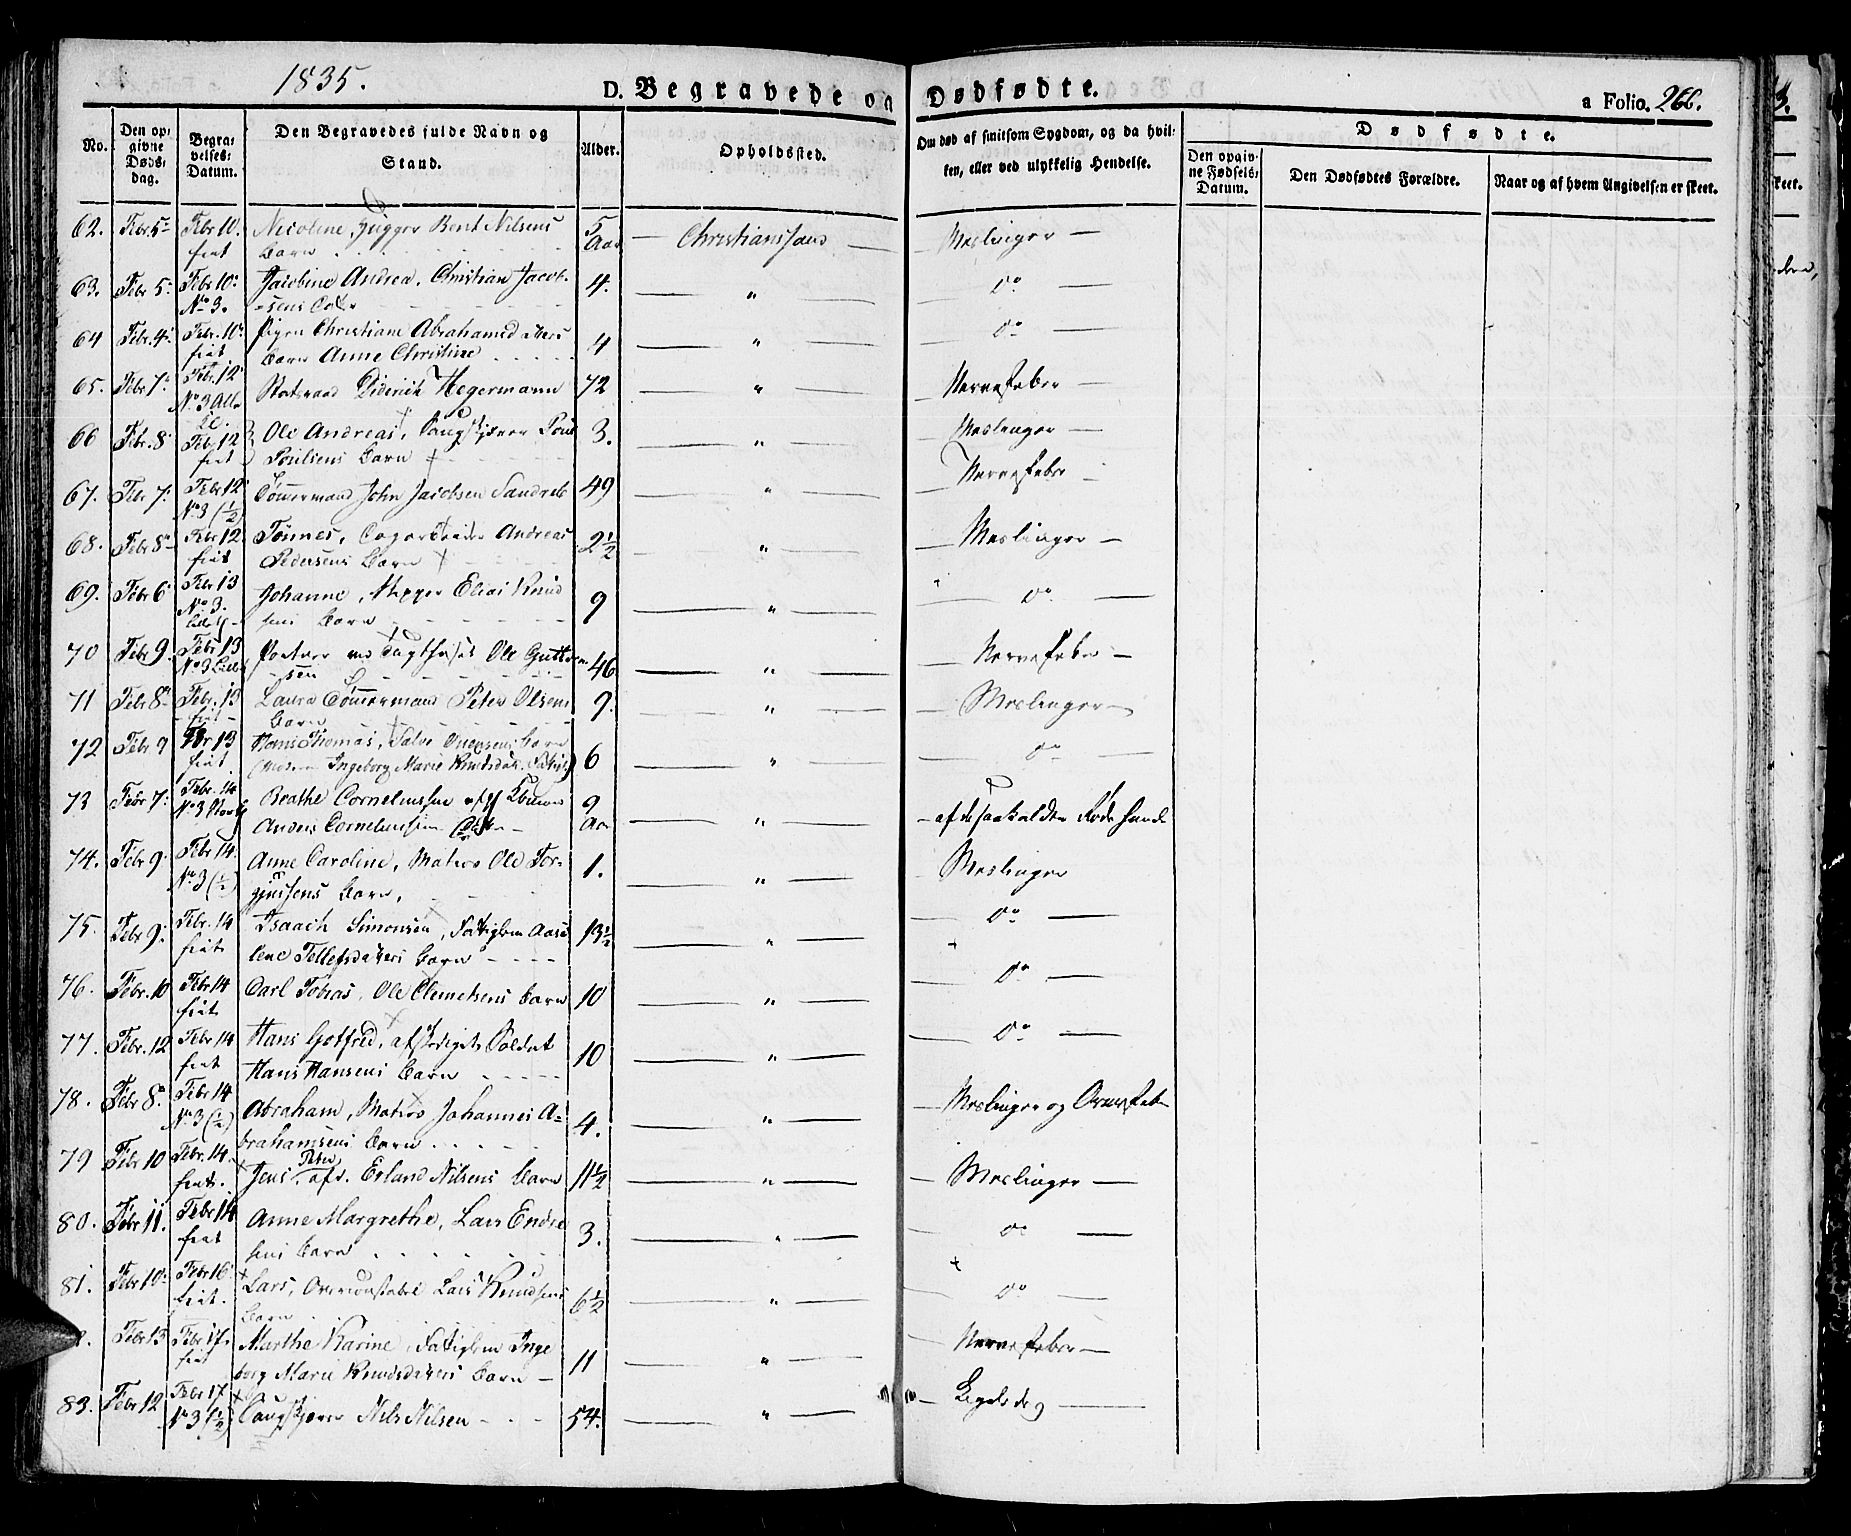 1835.
D. Begravede og Dødfødte.
a Folio. 266.
No.
Den opgivne Dødsdag.
Begravelses Datum.
Den Begravedes fulde Navn og Stand.
Alder.
Opholdssted.
Om død af smitsom Sygdom, og da hvilken, eller ved ulykkelig Hendelse.
Dødfødte.
Den opgivne Fødsels Datum.
Den Dødfødtes Forældre.
Naar og af hvem Angivelsen er skeet.
62. Febr 5 Febr 10. fiat Nicoline, Bent Nilsens Barn 5 Aar Christianssand Meslinger
63. Febr 5 Febr 10 No 3. Jacobine Andrea, Christian Jacobsens 4. " do
64 Febr. 4 Febr. 10 fiat Pigen Christiane Abrahamsd Barn Anne Christine 4 " do
65. Febr 7 Febr. 12 No 3 Statsraad Diderich Hegermann 72 " Nervefeber
66 Febr. 8 Febr 12 fiat Ole Andreas, Poul Poulsens Barn 3. " Meslinger
67. Febr 7. Febr 12 No 3 (½) Tømmermand John Jacobsen 49 " Nervefeber
68. Febr 8 Febr 12 fiat Tønnes, Andreas Pedersens Barn 2½ " Meslinger
69. Febr 6 Febr 13 No 3. Johanne, Skipper Elias Knudsens Barn 9 " do
70 Febr 9. Febr 13 No 3 Portner ved Tugthuset Ole 46 " Nervefeber
71 Febr 8 Febr. 13 fiat Laura Tømmermand Peter Olsens Barn 9. " Meslinger
72 Febr 9 Febr 13 fiat Hans Thomas, Salve Barn (Ingeborg Marie Knudsdatr. 6 " do
73 Febr 7. Febr. 14 No 3 Berthe Corneliussen Anders Corneliussen 9 Aar " af de saakaldte Røde Hunde
74. Febr 9. Febr 14. No 3 (½) Anne Caroline, Matros Ole Torgjussens Barn, 1. " Meslinger
75. Febr 9. Febr. 14 fiat Isaach Simonsen, Fattiglem Aaselene Tellefsdatters Barn 13½ " do
76. Febr. 10 Febr 14 fiat Carl Tobias, Ole Clemetsens Barn 10 " do
77. Febr. 12 Febr 14 fiat Hans Gotfred, afskediget Soldat Hans Hansens Barn 10 " do
78. Febr 8. Febr 14 No 3 (½) Abraham, Matros Johannes Abrahamsens Barn 4. " Meslinger og
79 Febr 10 Febr. 14. fiat. Jens Peter afd. Erland Nilsens Barn 11½ " Meslinger
80. Febr 11. Febr 14 fiat Anne Margrethe, Lars Endresens Barn 3. " do
81. Febr 10. Febr 16 fiat. Lars, Overconstabel Lars Knudsens Barn 6½ " do
Febr 13 Febr 17. fiat Marthe Karine, Fattiglem Ingeborg Marie Knudsdatters Barn 11 " Nervefeber
83. Febr 12 Febr 17 No 3 (½) Nils Nilsen 54. "